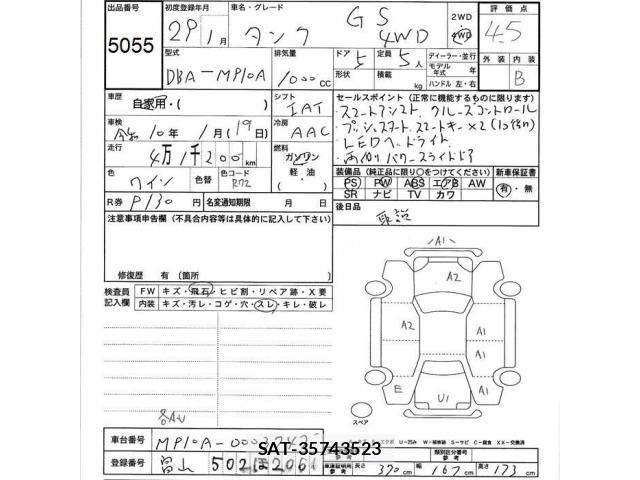 出品番号 5055
初度登録年月 29年1月
車名・グレード タンク GS 4WD
2WD 4WD
評価点 4.5
型式 DBA-MP10A
排気量 1000cc
ドア 5 定員 5人
形状 積載 kg
ディーラー・並行
モデル年式 年
ハンドル 左・右
外装 内装 B
車歴 自家用・( )
シフト IAT
車検 令和10年1月(19日)
冷房 AAC
走行 4万1千200km
燃料 ガソリン・軽油
色 ワイン 色替 色コード R72
R券 P130 名変通知期限 月 日
セールスポイント(正常に機能するものに限ります)
・スマートアシスト クルーズコントロール
・プッシュスタート スマートキー×2
・LEDヘッドライト
・両側パワースライドドア
装備品(純正品に限り○をつけてください) 新車保証書
PS PW ABS エアB AW 有・無
SR ナビ TV カワ
後日品 取説
注意事項申告欄(不具合内容等は具体的に記入して下さい)
修復歴 有(箇所
検査員記入欄
FW キズ・飛石・ヒビ割・リペア跡・X要
内装 キズ・汚レ・コゲ・穴・スレ・キレ・破レ
A1
A2
A2 A1
A1
E U1 A1
スペア
U-凹み W-補修跡 S-サビ C-腐食 XX-交換済
車台番号 MP10A-
SAT-35743523
登録番号 富山 502 ほ 2061
類別区分番号 参考
車庫証明用参考 長さ 370cm 幅 167cm 高さ 173cm